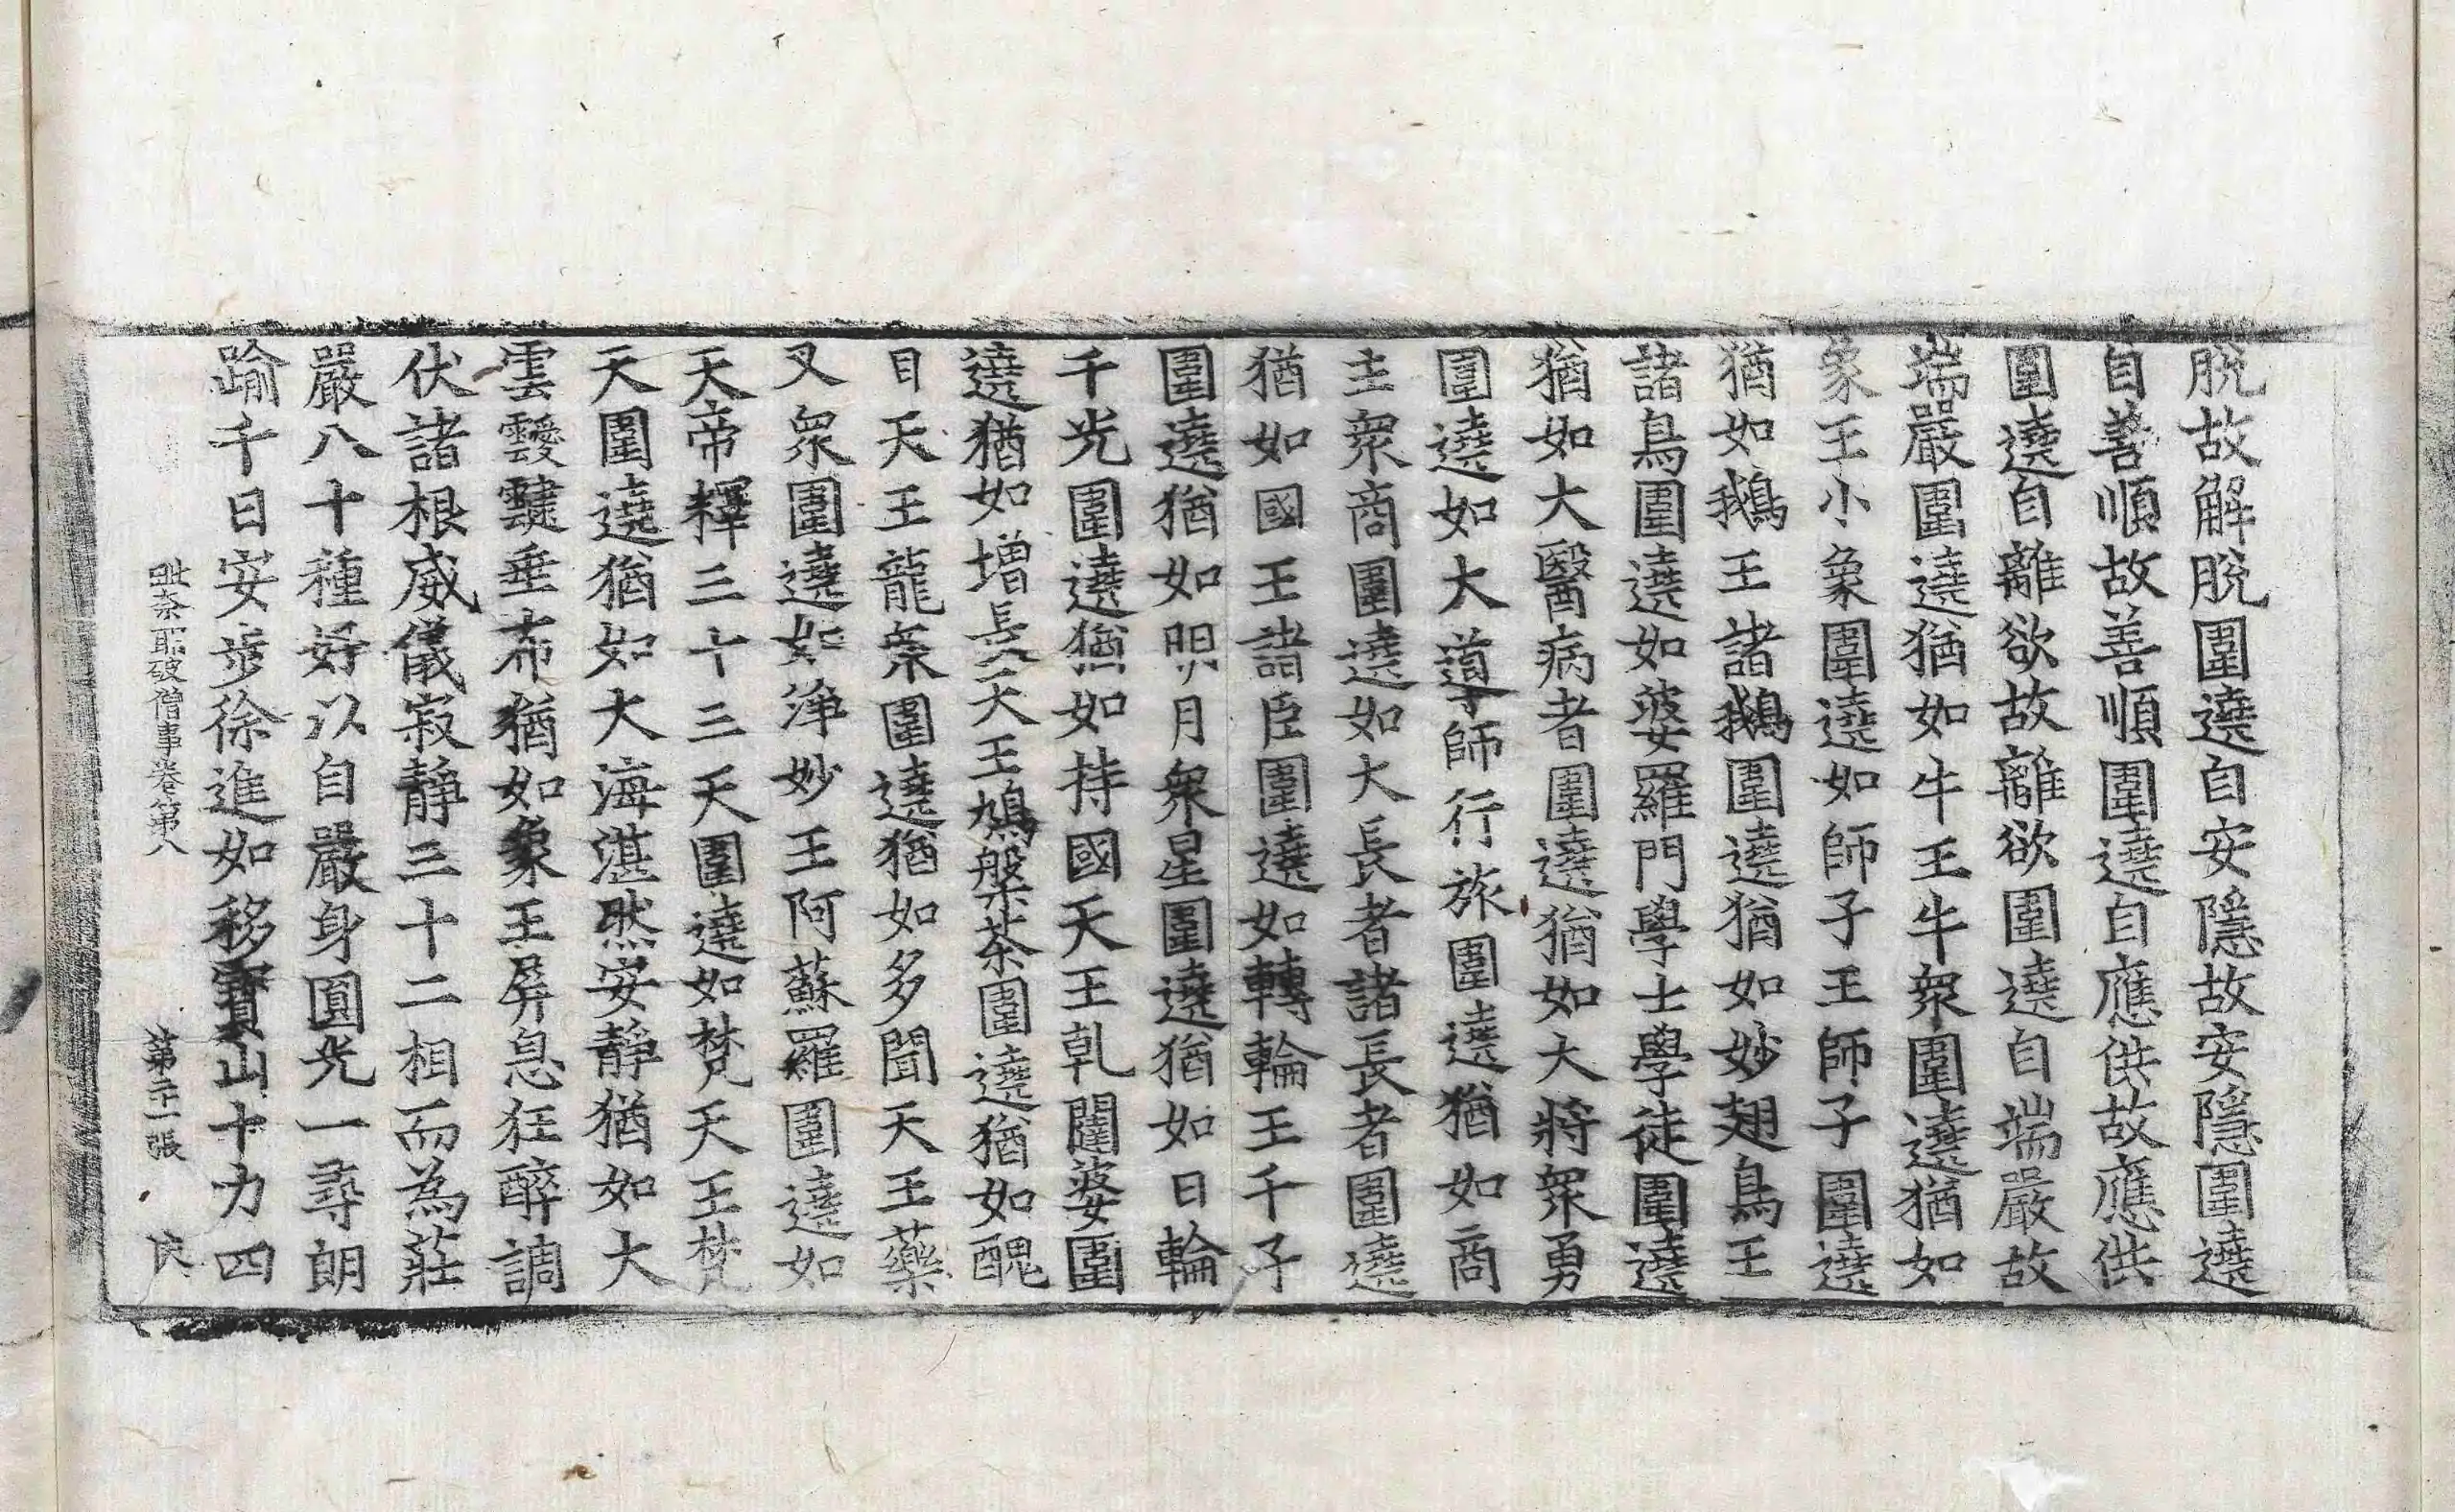 脱故解脱圍遶自安隱故安隱圍遶
自善順故善順圍遶自應供故應供
圍遶自離欲故離欲圍遶自端嚴故
端嚴圍遶猶如牛王牛衆圍遶猶如
象王小象圍遶如師子王師子圍遶
猶如鵝王諸鵝圍遶猶如妙翅鳥王
諸鳥圍遶如婆羅門學士學徒圍遶
猶如大醫病者圍遶猶如大將衆勇
圍遶如大導師行旅圍遶猶如商
主衆商圍遶如大長者諸長者圍遶
猶如國王諸臣圍遶如轉輪王千子
圍遶猶如明月衆星圍遶猶如日輪
千光圍遶猶如持國天王乹闥婆圍
遶猶如增長天王鳩槃茶圍遶猶如醜
目天王龍衆圍遶猶如多聞天王藥
叉衆圍遶如淨妙王阿蘇羅圍遶如
天帝釋三十三天圍遶如梵天王梵
天圍遶猶如大海湛然安靜猶如大
雲靉靆垂布猶如象王屏息狂醉調
伏諸根威儀寂靜三十二相而為莊
嚴八十種好以自嚴身圓光一尋朗
踰千日安步徐進如移寶山十力四
毗奈耶破僧事卷第八 第二十一張